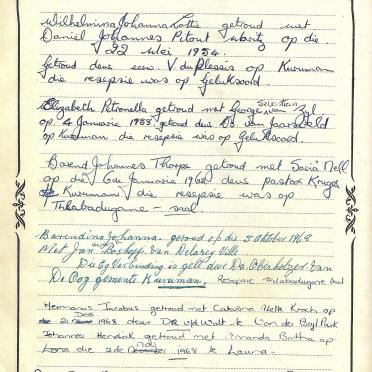 Wilhelmina Johanna Lottie getroud met
Daniel Johannes Pitout op die
22 Mei 1954.
Getroud deur eerw. V du Plessis op Kuruman
die resepsie was op Geluksoord.
Elizabeth Petronella getroud met George
op 4 Januarie getroud deur Ds van Jaarsveld
op Kuruman die resepsie was op Geluksoord.
Barend Johannes Thorpe getroud met Nell
op die 6de Januarie 1962 deur pastor Kruger
Kuruman die resepsie was op
Thabadugame - saal
Barendina Johanna getroud op die 5 Oktober 1963
Met Jan Boshoff van Delarey Ville
Die Eg Verbinding is gelei deur Ds Oberholzer van
De Oog gemeente Kuruman. Resepsie saal
Hermanus Jacobus getroud met Catarina op
die Des 1968 deur DR vd Walt te Van der Byl Park
Johannes Hendrik getroud met Botha op
die 2de 1968 te